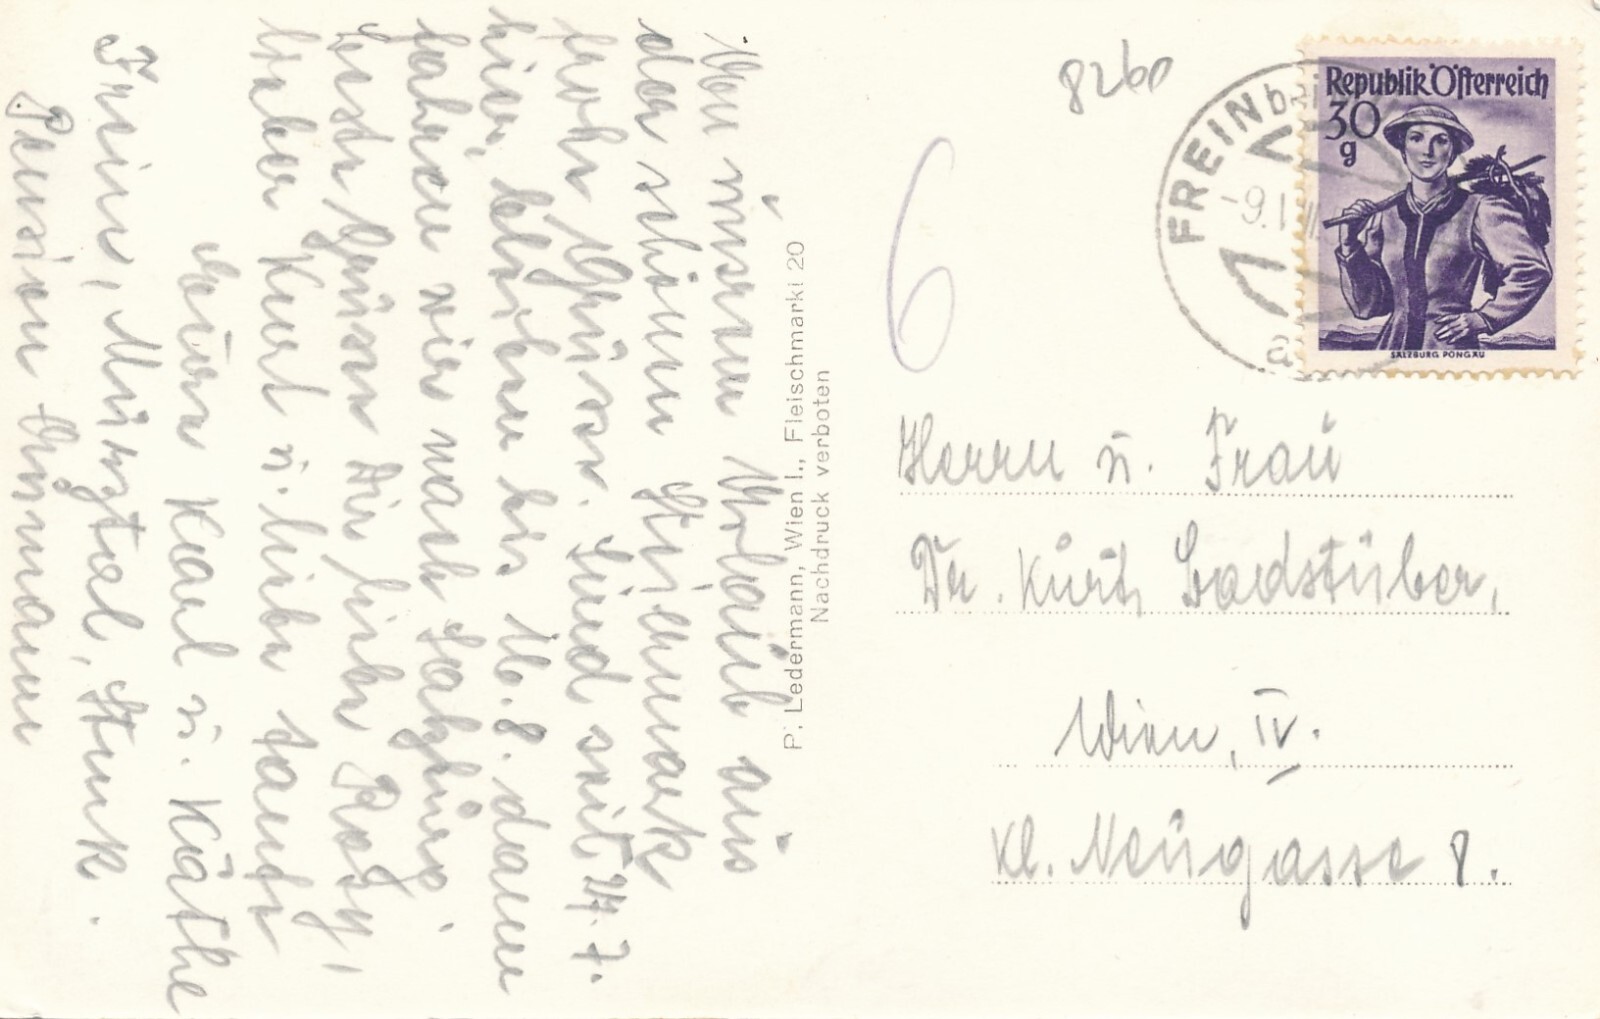 Von unserem Urlaub aus
der schönen Steiermark
frohe Grüsse. Sind seit 24. 7.
hier, bleiben bis 16. 8. dann
fahren wir nach Salzburg.
Feste Grüsse Dir liebe Rosy,
lieber Kurt u. liebe Tante
Euere Karl u. Käthe
Frein, Mürztal, Stmk.
Pension
P. Ledermann, Wien I., Fleischmarkt 20
Nachdruck verboten
8260
6
FREIN bei
-9.
a
Republik Österreich
30
g
SALZBURG PONGAU
Herrn u. Frau
Dr. Kurt Badstüber,
Wien, IV.
Kl. Neugasse 8.